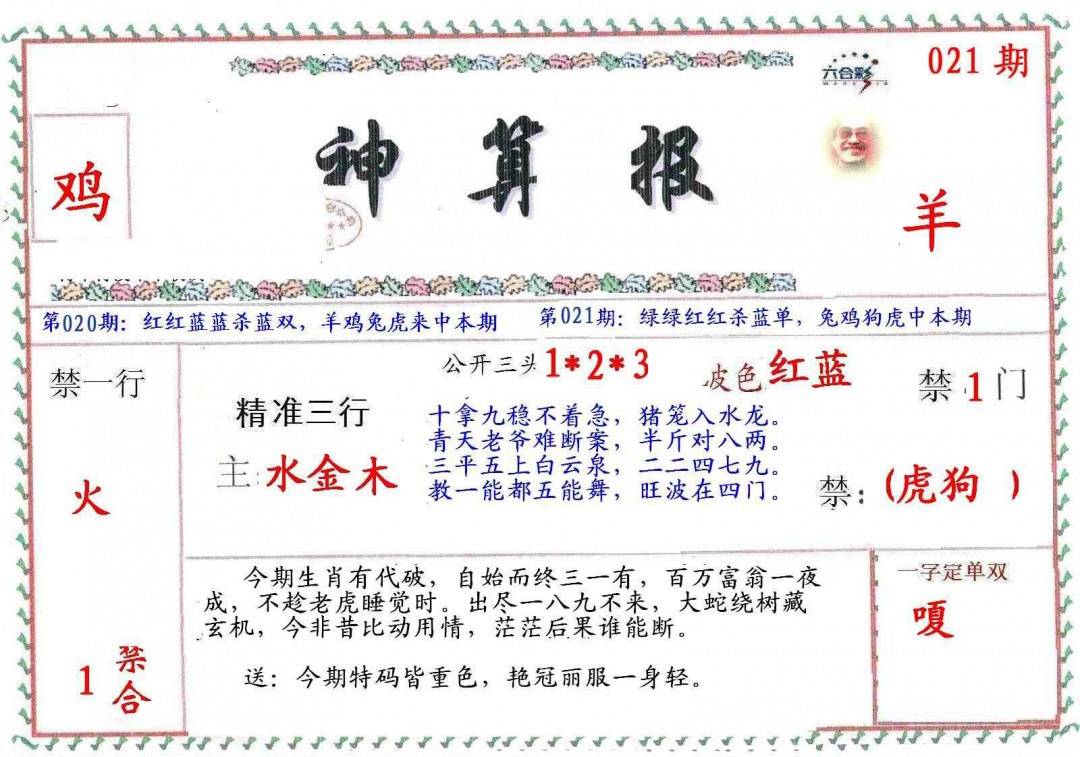 六合彩
021 期
鸡
神算报
羊
第020期：红红蓝蓝杀蓝双，羊鸡兔虎来中本期
第021期：绿绿红红杀蓝单，兔鸡狗虎中本期
禁一行
火
1 禁合
公开三头 1*2*3
波色 红蓝
精准三行
主: 水金木
十拿九稳不着急，猪笼入水龙。
青天老爷难断案，半斤对八两。
三平五上白云泉，二二四七九。
教一能都五能舞，旺波在四门。
禁 1 门
禁：(虎狗 )
今期生肖有代破，自始而终三一有，百万富翁一夜
成，不趁老虎睡觉时。出尽一八九不来，大蛇绕树藏
玄机，今非昔比动用情，茫茫后果谁能断。
送：今期特码皆重色，艳冠丽服一身轻。
一字定单双
嘎